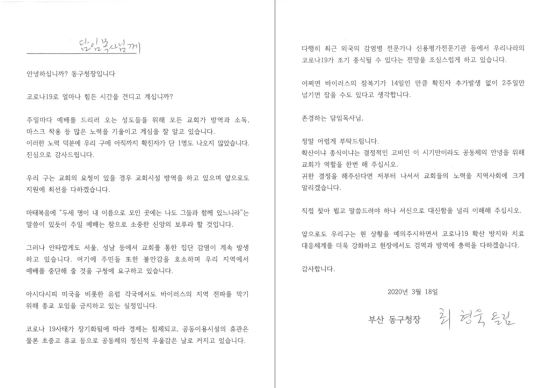 담임목사님께
안녕하십니까? 동구청장입니다
코로나19로 얼마나 힘든 시간을 견디고 계십니까?
주일마다 예배를 드리러 오는 성도들을 위해 모든 교회가 방역과 소독,
마스크 착용 등 많은 노력을 기울이고 계심을 잘 알고 있습니다.
이러한 노력 덕분에 우리 구에 아직까지 확진자가 단 1명도 나오지 않았습니다.
진심으로 감사드립니다.
우리 구는 교회의 요청이 있을 경우 교회시설 방역을 하고 있으며 앞으로도
지원에 최선을 다하겠습니다.
마태복음에 "두세 명이 내 이름으로 모인 곳에는 나도 그들과 함께 있느니라"는
말씀이 있듯이 주일 예배는 참으로 소중한 신앙의 보루라 할 것입니다.
그러나 안타깝게도 서울, 성남 등에서 교회를 통한 집단 감염이 계속 발생
하고 있습니다. 여기에 주민들 또한 불안감을 호소하며 우리 지역에서
예배를 중단해 줄 것을 구청에 요구하고 있습니다.
아시다시피 미국을 비롯한 유럽 각국에서도 바이러스의 지역 전파를 막기
위해 종교 모임을 금지하고 있는 실정입니다.
코로나 19사태가 장기화됨에 따라 경제는 침체되고, 공동이용시설의 휴관은
물론 초중고 휴교 등으로 공동체의 정신적 우울감은 날로 커지고 있습니다.
다행히 최근 외국의 감염병 전문가나 신용평가전문기관 등에서 우리나라의
코로나19가 조기 종식될 수 있다는 전망을 조심스럽게 하고 있습니다.
어쩌면 바이러스의 잠복기가 14일인 만큼 확진자 추가발생 없이 2주일만
넘기면 잡을 수도 있다고 생각합니다.
존경하는 담임목사님,
정말 어렵게 부탁드립니다.
확산이냐 종식이냐는 결정적인 고비인 이 시기만이라도 공동체의 안녕을 위해
교회가 역할을 한번 해 주십시오.
귀한 결정을 해주신다면 저부터 나서서 교회들의 노력을 지역사회에 크게
알리겠습니다.
직접 찾아 뵙고 말씀드려야 하나 서신으로 대신함을 널리 이해해 주십시오.
앞으로도 우리구는 현 상황을 예의주시하면서 코로나19 확산 방지와 치료
대응체계를 더욱 강화하고 현장에서도 검역과 방역에 총력을 다하겠습니다.
감사합니다.
2020년 3월 18일
부산 동구청장 최형욱 드림